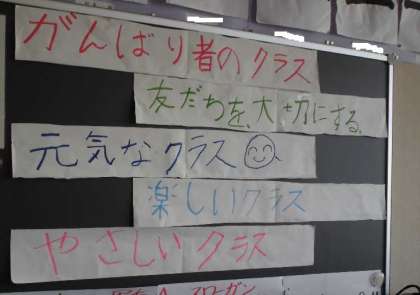 がんばり者のクラス
友だちを、大切にする。
元気なクラス
楽しいクラス
やさしいクラス
スローガン